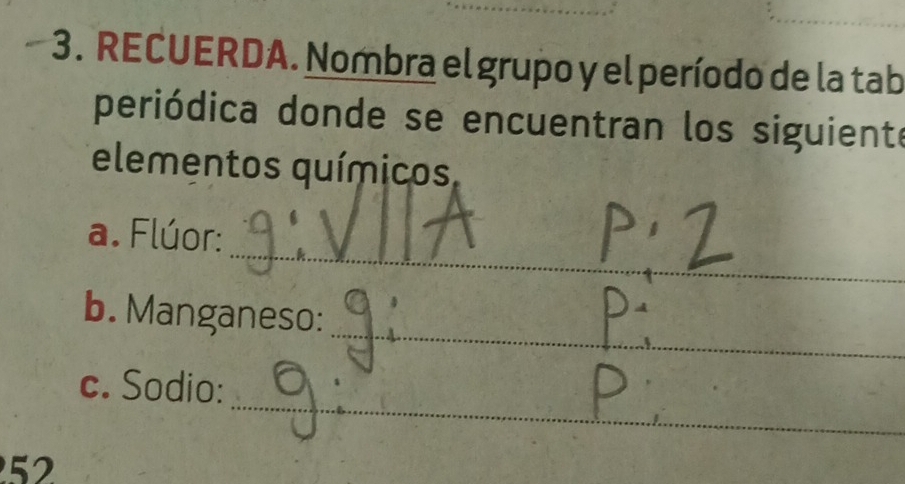 3. RECUERDA. Nombra el grupo y el período de la tab
periódica donde se encuentran los siguiente
elementos químicos.
a. Flúor: g: VIIA P: 2
b. Manganeso: g: P:
c. Sodio: g: P:
252